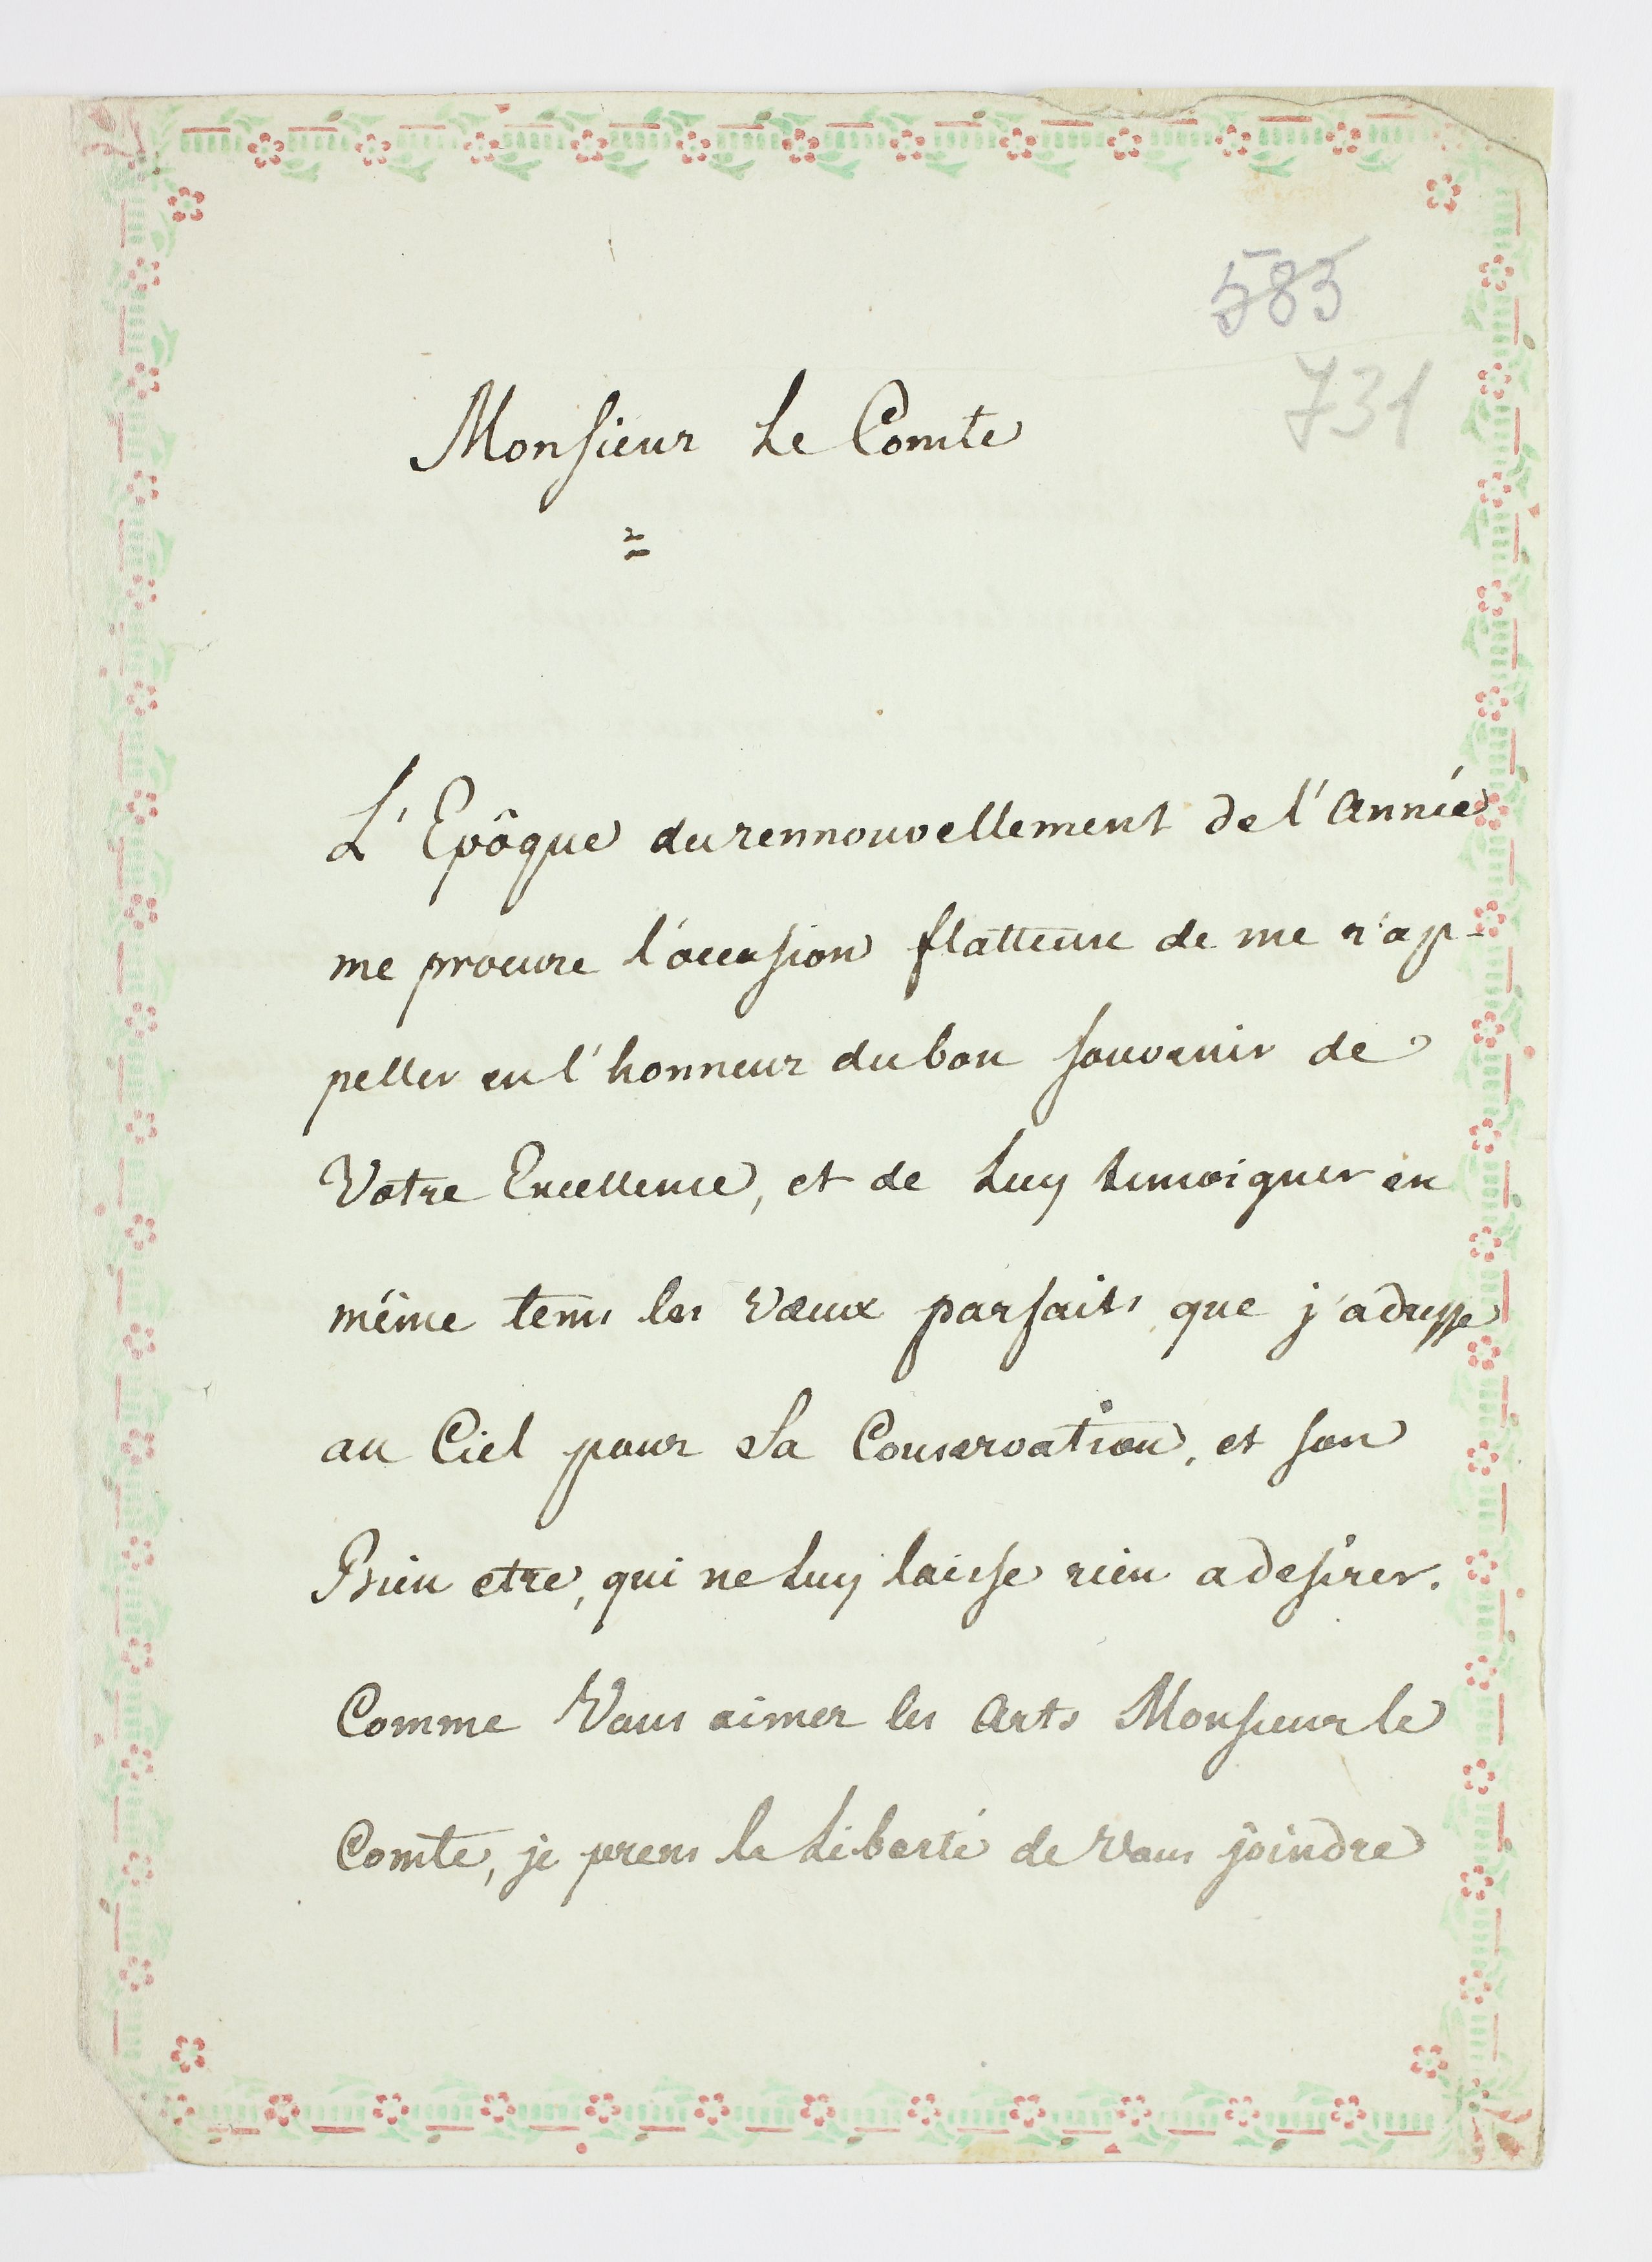 583
731
Monsieur Le Comte
L'Epôque du rennouvellement de l'Année
me procure l'occasion flatteuse de me r'ap-
peller en l'honneur du bon souvenir de
Votre Excellence, et de Luy temoigner en
même tems les vœux parfaits que j'adresse
au Ciel pour Sa Conservation, et son
Bien etre, qui ne Luy laisse rien a desirer.
Comme Vous aimez les Arts Monsieur le
Comte, je prens la Liberté de Vous joindre